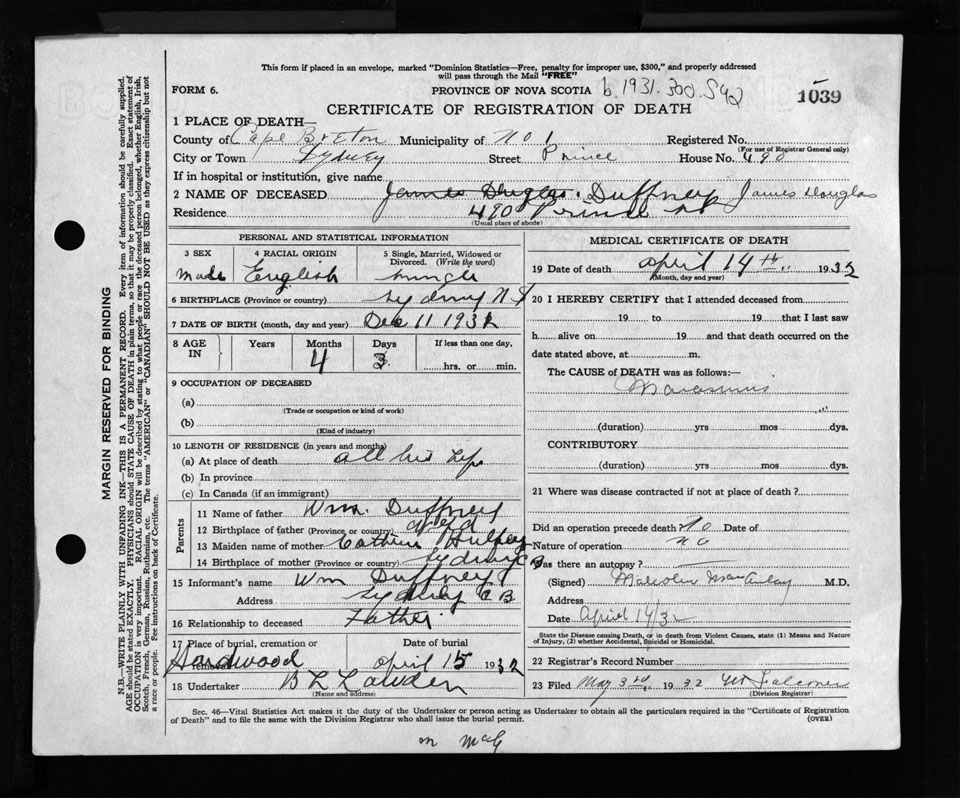 This form if placed in an envelope, marked "Dominion Statistics—Free, penalty for improper use, $300," and properly addressed
will pass through the Mail "FREE"
FORM 6. PROVINCE OF NOVA SCOTIA b. 1931. 300. 592
1039
CERTIFICATE OF REGISTRATION OF DEATH
1 PLACE OF DEATH—
County of Cape Breton Municipality of No 1 Registered No.
(For use of Registrar General only)
City or Town Sydney Street Prince House No. 490
If in hospital or institution, give name
2 NAME OF DECEASED James Duglas. Duffney James Douglas
Residence 490 Prince St
(Usual place of abode)
PERSONAL AND STATISTICAL INFORMATION
3 SEX 4 RACIAL ORIGIN 5 Single, Married, Widowed or
Divorced. (Write the word)
Male English single
6 BIRTHPLACE (Province or country) Sydney N S
7 DATE OF BIRTH (month, day and year) Dec 11 1932
8 AGE IN Years Months Days If less than one day,
4 3 hrs. or min.
9 OCCUPATION OF DECEASED
(a)
(Trade or occupation or kind of work)
(b)
(Kind of industry)
10 LENGTH OF RESIDENCE (in years and months)
(a) At place of death all his life
(b) In province
(c) In Canada (if an immigrant)
Parents
11 Name of father Wm. Duffney
12 Birthplace of father (Province or country) Nfld
13 Maiden name of mother Cathrine
14 Birthplace of mother (Province or country) Sydney C B
15 Informant's name Wm Duffney
Address Sydney C B
16 Relationship to deceased Father
17 Place of burial, cremation or removal Date of burial
Hardwood April 15 1932
18 Undertaker B L
(Name and address)
MEDICAL CERTIFICATE OF DEATH
19 Date of death April 14th 1932
(Month, day and year)
20 I HEREBY CERTIFY that I attended deceased from
19 to 19 that I last saw
h alive on 19 and that death occurred on the
date stated above, at m.
The CAUSE of DEATH was as follows:—
Marasmus
(duration) yrs mos dys.
CONTRIBUTORY
(duration) yrs mos dys.
21 Where was disease contracted if not at place of death?
Did an operation precede death? No Date of
Nature of operation no
Was there an autopsy?
(Signed) Malcolm MacAulay M.D.
Address
Date April 14/32
State the Disease causing Death, or in death from Violent Causes, state (1) Means and Nature
of Injury, (2) whether Accidental, Suicidal or Homicidal.
22 Registrar's Record Number
23 Filed May 3rd 1932 Falconer
(Division Registrar)
Sec. 46—Vital Statistics Act makes it the duty of the Undertaker or person acting as Undertaker to obtain all the particulars required in the "Certificate of Registration
of Death" and to file the same with the Division Registrar who shall issue the burial permit. (OVER)
m McG
MARGIN RESERVED FOR BINDING
N.B.—WRITE PLAINLY WITH UNFADING INK—THIS IS A PERMANENT RECORD. Every item of information should be carefully supplied.
AGE should be stated EXACTLY. PHYSICIANS should STATE CAUSE OF DEATH in plain terms, so that it may be properly classified. Exact statement of
OCCUPATION is very important. RACIAL ORIGIN will be described by stating to what people or race the deceased person belonged, whether English, Irish,
Scotch, French, German, Russian, Ruthenian, etc. The terms "AMERICAN" or "CANADIAN" SHOULD NOT BE USED as they express citizenship but not
a race or people. See instructions on back of Certificate.